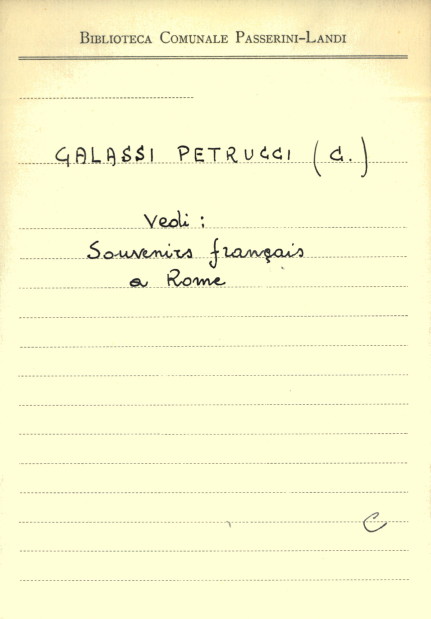 Biblioteca Comunale Passerini-Landi
GALASSI PETRUCCI (C.)
Vedi:
Souvenirs français
a Rome
C